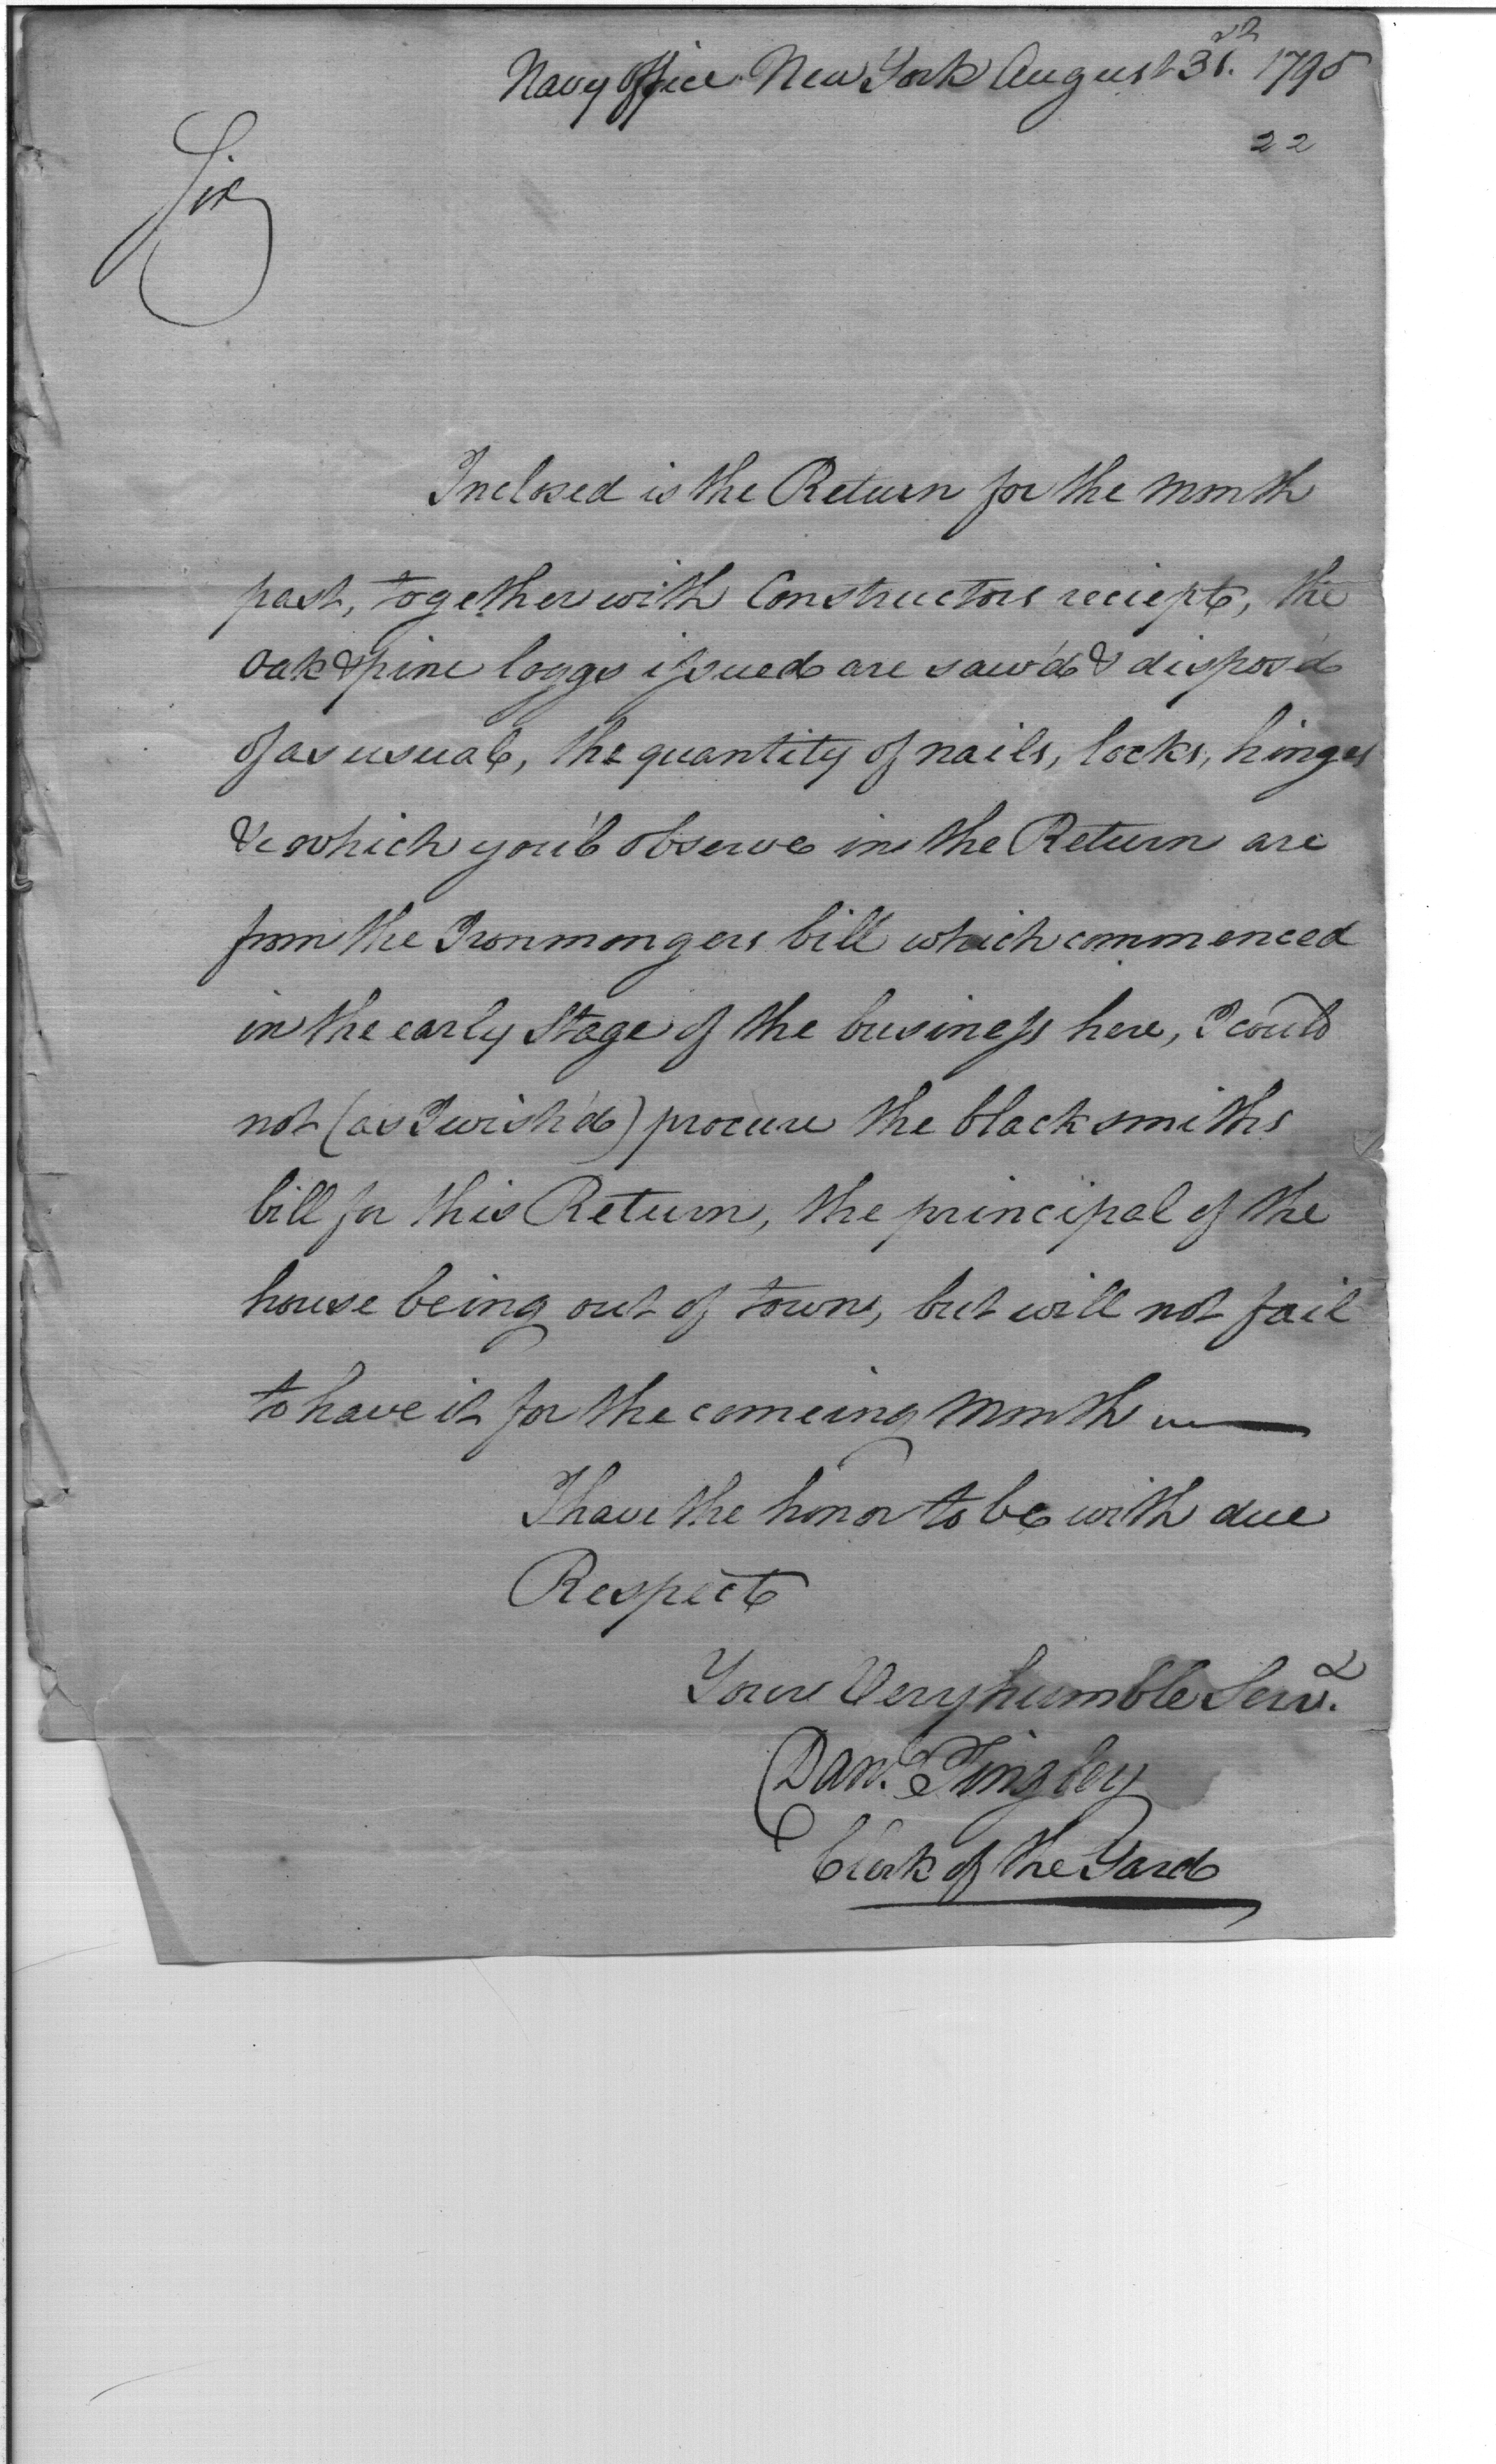 Navy Office New York August 31st. 1795
22
Sir
Inclosed is the Return for the month
past, together with Constructors reciept, the
Oak & pine loggs issued are saw'd & dispos'd
of as usual, the quantity of nails, locks, hinges
&c which you'l observe in the Return are
from the Ironmongers bill which commenced
in the early Stage of the business here, I could
not (as I wish'd) procure the blacksmiths
bill for this Return, the principal of the
house being out of town, but will not fail
to have it for the comeing month
I have the honor to be with due
Respect
Your Very humble Servt.
Danl. Tingley
Clerk of the Yard